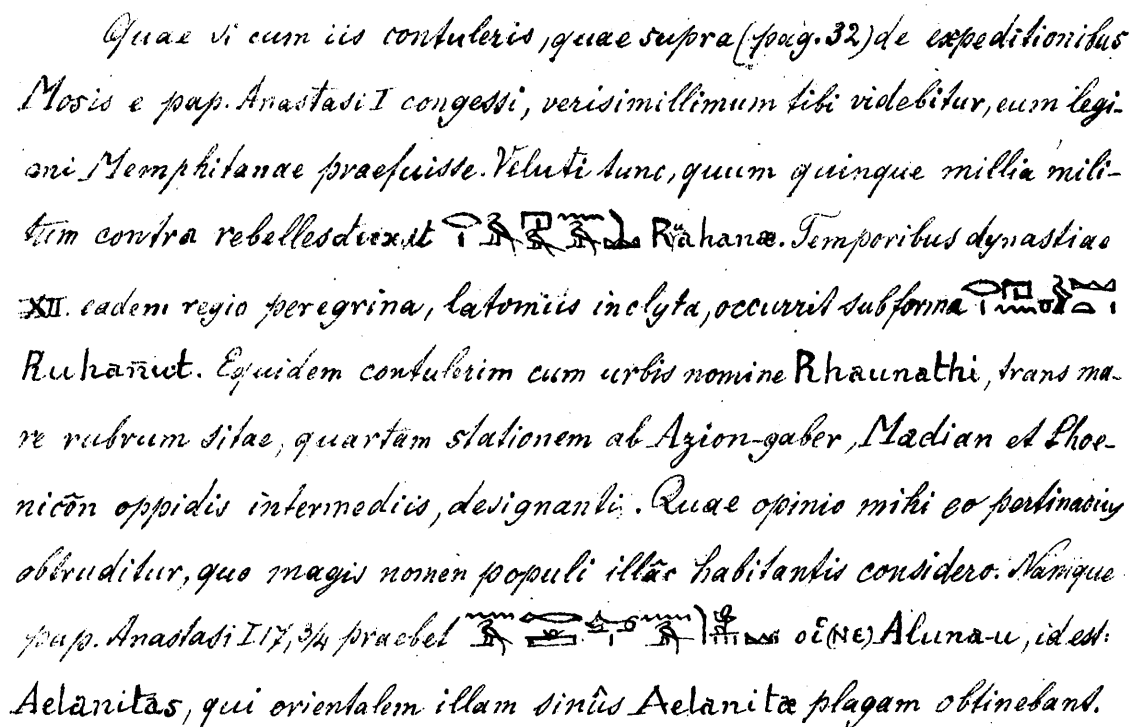 Quae si cum iis contuleris, quae supra (pag. 32) de expeditionibus
Mosis e pap. Anastasi I congessi, verisimillimum tibi videbitur, eum legi-
oni Memphitanae praefuisse. Veluti tunc, quum quinque millia mili-
tum contra rebelles duxit Rähanæ. Temporibus dynastiae
XII. eadem regio peregrina, latomiis inclyta, occurrit sub forma
Ruhañut. Equidem contulerim cum urbis nomine Rhaunathi, trans ma-
re rubrum sitae, quartam stationem ab Azion-gaber, Madian et Phoe-
nicōn oppidis intermediis, designanti. Quae opinio mihi eo pertinacius
obtruditur, quo magis nomen populi illāc habitantis considero. Namque
pap. Anastasi I 17, 3/4 praebet (NE) Aluna-u, id est:
Aelanitas, qui orientalem illam sinûs Aelanitæ plagam obtinebant.